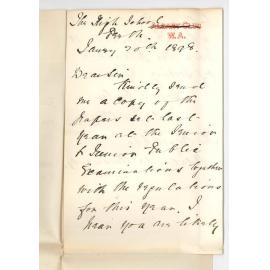 The High School
Perth. W.A.
Jany 20th 1898.
Dear Sir
Kindly send
me a copy of the
Papers set last
year at the Senior
& Junior Public
Examinations together
with the regulations
for this year. I
hear you are likely